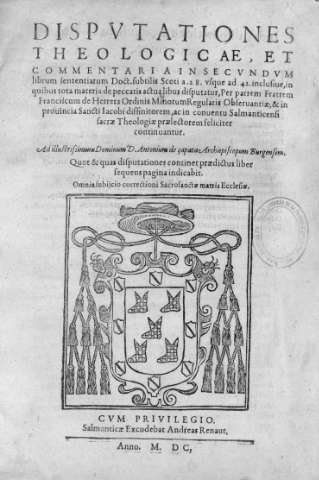 DISPVTATIONES
THEOLOGICAE, ET
COMMENTARIA IN SECVNDVM
librum sententiarum Doct. subtilis Scoti a. 28. vsque ad 42. inclusiue, in
quibus tota materia de peccatis actualibus disputatur, Per patrem Fratrem
Franciscum de Herrera Ordinis Minorum Regularis Obseruantiæ, & in
prouincia Sancti Iacobi diffinitorem, ac in conuentu Salmanticensi
sacræ Theologiæ prælectorem feliciter
continuantur.
Ad illustrissimum Dominum D. Antonium de çapata: Archiepiscopum Burgensem.
Quot & quas disputationes continet prædictus liber
sequens pagina indicabit.
Omnia subijcio correctioni Sacrosanctæ matris Ecclesiæ.
CVM PRIVILEGIO.
Salmanticæ Excudebat Andreas Renaut,
Anno. M. DC,